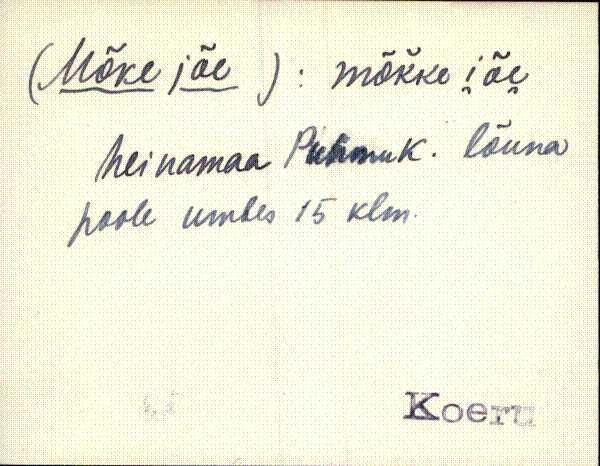 (Mõke jõe) : mõk̆ke i̯õe̯
heinamaa Puhmu k. lõuna
poole umbes 15 klm.
Koeru